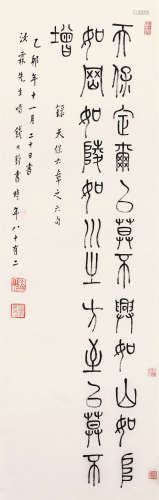 天保定爾以莫不興如山如阜
如岡如陵如川之方至以莫不
增
錄天保六章之六句
乙卯年十一月二十日書
汝霖先生 書時年八十有二